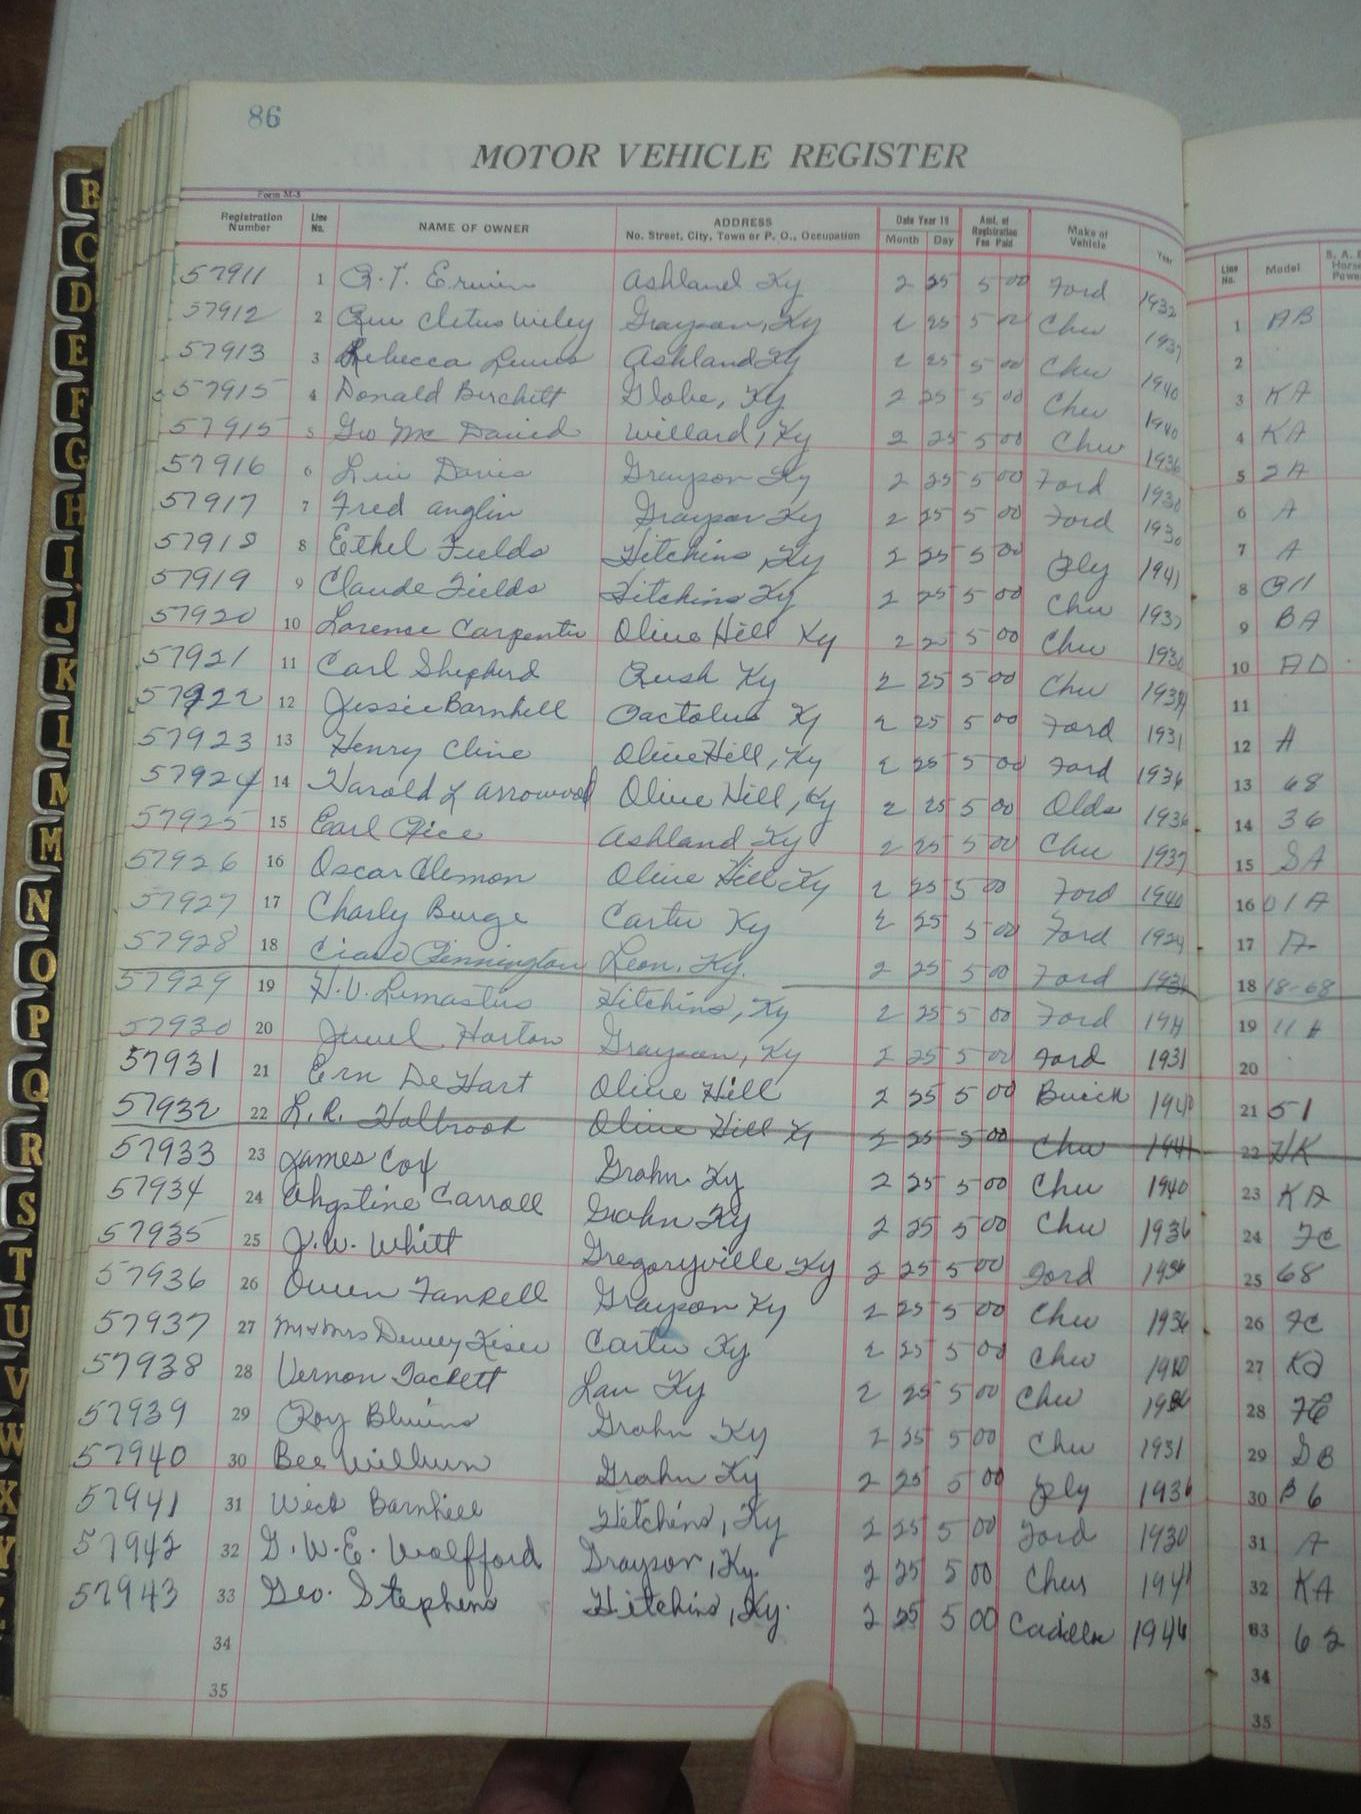 86
MOTOR VEHICLE REGISTER
Form M-3
Registration Number Line No. NAME OF OWNER ADDRESS No. Street, City, Town or P. O., Occupation Date Year 19 Month Day Amt. of Registration Fee Paid Make of Vehicle Year Line No. Model
57911 1 Ashland Ky 2 25 5 00 Ford 1932 1 AB
57912 2 Cletus Wiley Grayson, Ky 2 25 5 00 Chev 1937 2
57913 3 Rebecca Lewis Ashland Ky 2 25 5 00 Chev 1940 3 KA
57915 4 Donald Burchett Globe, Ky 2 25 5 00 Chev 1940 4 KA
57915 5 Geo Mc Daniel Willard, Ky 2 25 5 00 Chev 1936 5 2A
57916 6 Davis Grayson Ky 2 25 5 00 Ford 1930 6 A
57917 7 Fred Anglin Grayson Ky 2 25 5 00 Ford 1930 7 A
57918 8 Ethel Fields Hitchins Ky 2 25 5 00 Ply 1941 8
57919 9 Claude Fields Hitchins Ky 2 25 5 00 Chev 1937 9 BA
57920 10 Lorense Carpenter Olive Hill Ky 2 25 5 00 Chev 1930 10 AD
57921 11 Carl Shepherd Rush Ky 2 25 5 00 Chev 11
57922 12 Jessie Barnhill Pactolus Ky 2 25 5 00 Ford 1931 12 A
57923 13 Henry Cline Olive Hill, Ky 2 25 5 00 Ford 1936 13 68
57924 14 Harold L Arrowood Olive Hill, Ky 2 25 5 00 Olds 1936 14 36
57925 15 Earl Rice Ashland Ky 2 25 5 00 Chev 1937 15 SA
57926 16 Oscar Clemon Olive Hill Ky 2 25 5 00 Ford 1940 16 01A
57927 17 Charly Burge Carter Ky 2 25 5 00 Ford 1929 17 A
57928 18 Pennington Leon, Ky. 2 25 5 00 Ford 1936 18 18-68
57929 19 H.V. Lemasters Hitchins, Ky 2 25 5 00 Ford 1941 19 11A
57930 20 Jewel Horton Grayson, Ky 2 25 5 00 Ford 1931 20
57931 21 Ern DeHart Olive Hill 2 25 5 00 Buick 1940 21 51
57932 22 L.R. Holbrook Olive Hill Ky 2 25 5 00 Chev 1941 22
57933 23 James Cox Grahn Ky 2 25 5 00 Chev 1940 23 KA
57934 24 Carroll Grahn Ky 2 25 5 00 Chev 1936 24 FC
57935 25 J.W. Whitt Gregoryville Ky 2 25 5 00 Ford 1936 25 68
57936 26 Owen Fannell Grayson Ky 2 25 5 00 Chev 1936 26 FC
57937 27 Mr & Mrs Dewey Kiser Carter Ky 2 25 5 00 Chev 1940 27 KA
57938 28 Vernon Tackett Ky 2 25 5 00 Chev 1936 28 FC
57939 29 Roy Blevins Grahn Ky 2 25 5 00 Chev 1931 29
57940 30 Bee Wilburn Grahn Ky 2 25 5 00 Ply 1936 30
57941 31 Barnhill Hitchins, Ky 2 25 5 00 Ford 1930 31 A
57942 32 G.W.E. Wolfford Grayson, Ky. 2 25 5 00 Chev 1941 32 KA
57943 33 Geo. Stephens Hitchins, Ky. 2 25 5 00 1946 33 62
34 34
35 35
B
C
D
E
F
G
H
I
J
K
L
M
M
N
O
P
Q
R
S
T
U
V
W
X
Y